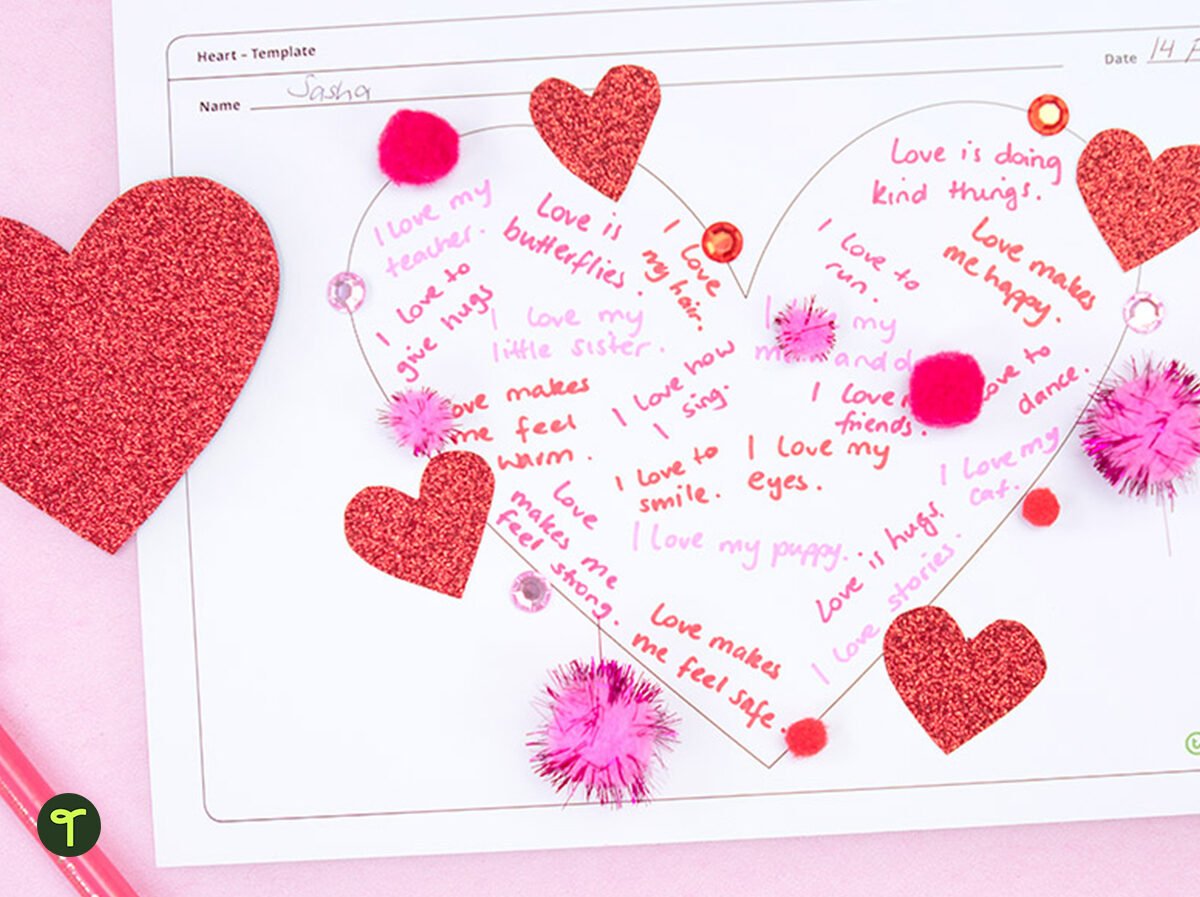 Heart – Template
Date 14 F
Name Sasha
I love my
teacher.
Love is
butterflies.
I love
my hair.
I love to
give hugs
I love my
little sister.
love makes
me feel
warm.
I love how
I sing.
I love to
smile.
I love my
eyes.
love
makes me
feel strong.
I love my puppy.
Love makes
me feel safe.
Love is doing
kind things.
I love to
run.
Love makes
me happy.
I my
and
I love
friends.
to
dance.
I love my
cat.
Love is hugs.
I love stories.